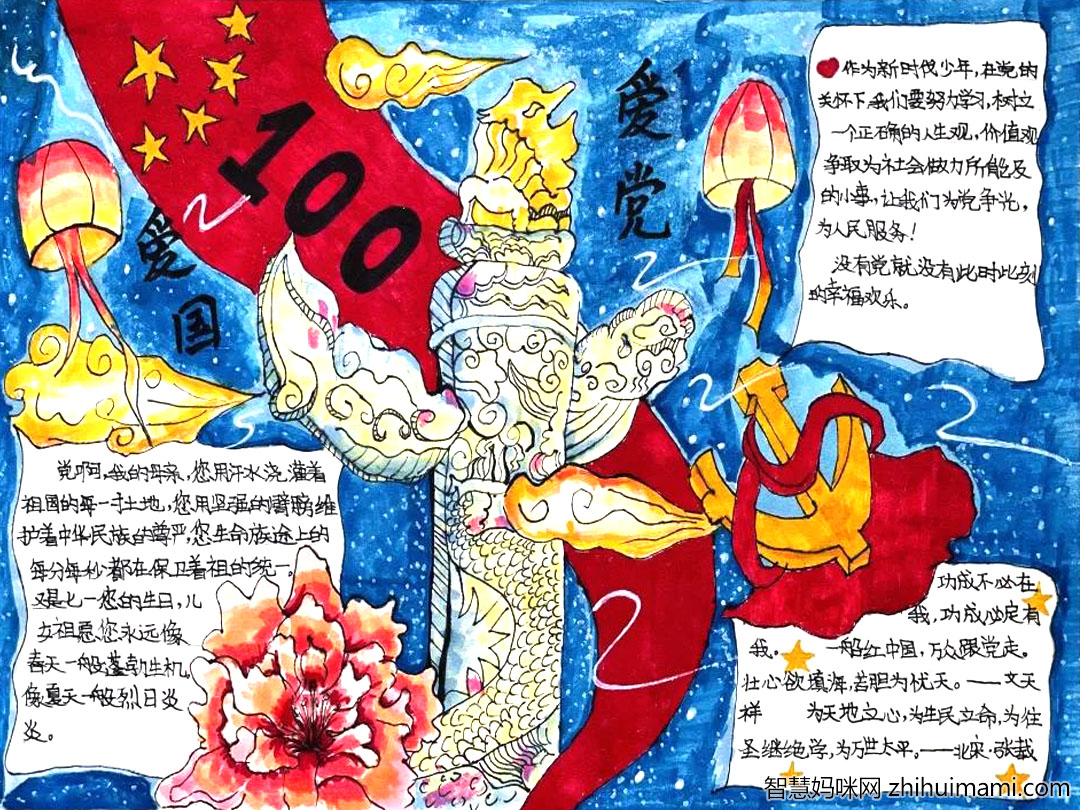 100
爱国
爱党
作为新时代少年，在党的
关怀下，我们要努力学习，树立
一个正确的人生观，价值观
争取为社会做力所能及
的小事，让我们为党争光，
为人民服务！
没有党就没有此时此刻
的幸福欢乐。
党啊，我的母亲，您用汗水浇灌着
祖国的每一寸土地，您用坚强的臂膀维
护着中华民族的尊严，您生命旅途上的
每分每秒都在保卫着祖的统一。
又是七一您的生日，儿
女祖愿您永远像
春天一般蓬勃生机。
像夏天一般烈日炎
炎。
功成不必在
我，功成必定有
我。 一般红中国，万众跟党走。
壮心欲填海，苦胆为忧天。——文天
祥 为天地立心，为生民立命，为往
圣继绝学，为万世太平。——北宋·张载
智慧妈咪网 zhihuimami.com